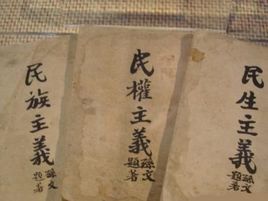 民族主義
孫文著
題
民權主義
孫文著
題
民生主義
孫文著
題